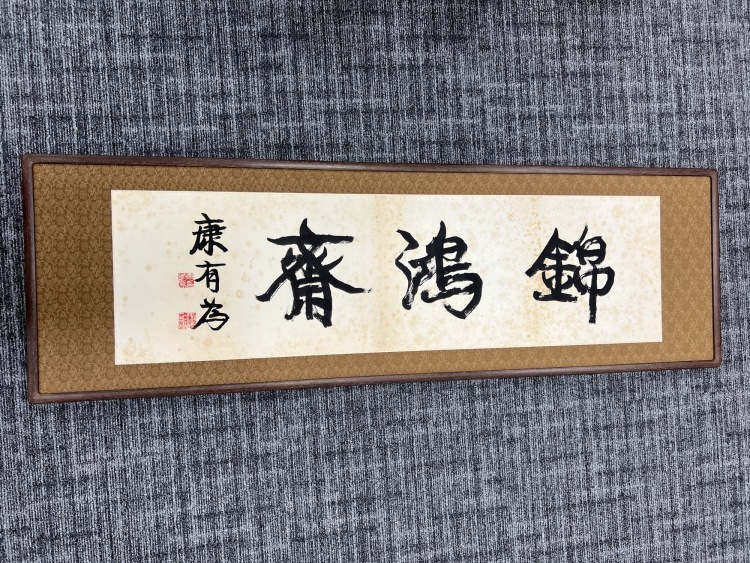 錦鴻齋
康有為